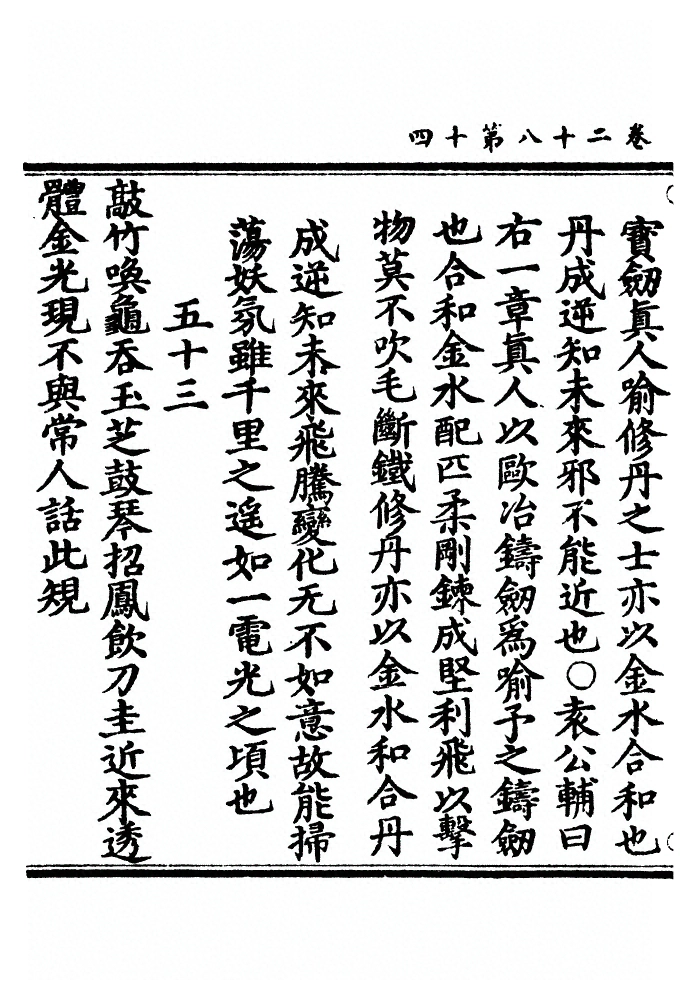 卷二十八第十四
寶劒眞人喻修丹之士亦以金水合和也
丹成逆知未來邪不能近也〇袁公輔曰
右一章眞人以歐冶鑄劒爲喻予之鑄劒
也合和金水配匹柔剛鍊成堅利飛以擊
物莫不吹毛斷鐵修丹亦以金水和合丹
成逆知未來飛騰變化无不如意故能掃
蕩妖氛雖千里之遥如一電光之頃也
五十三
敲竹喚龜吞玉芝鼓琴招鳳飲刀圭近來透
體金光現不與常人話此規